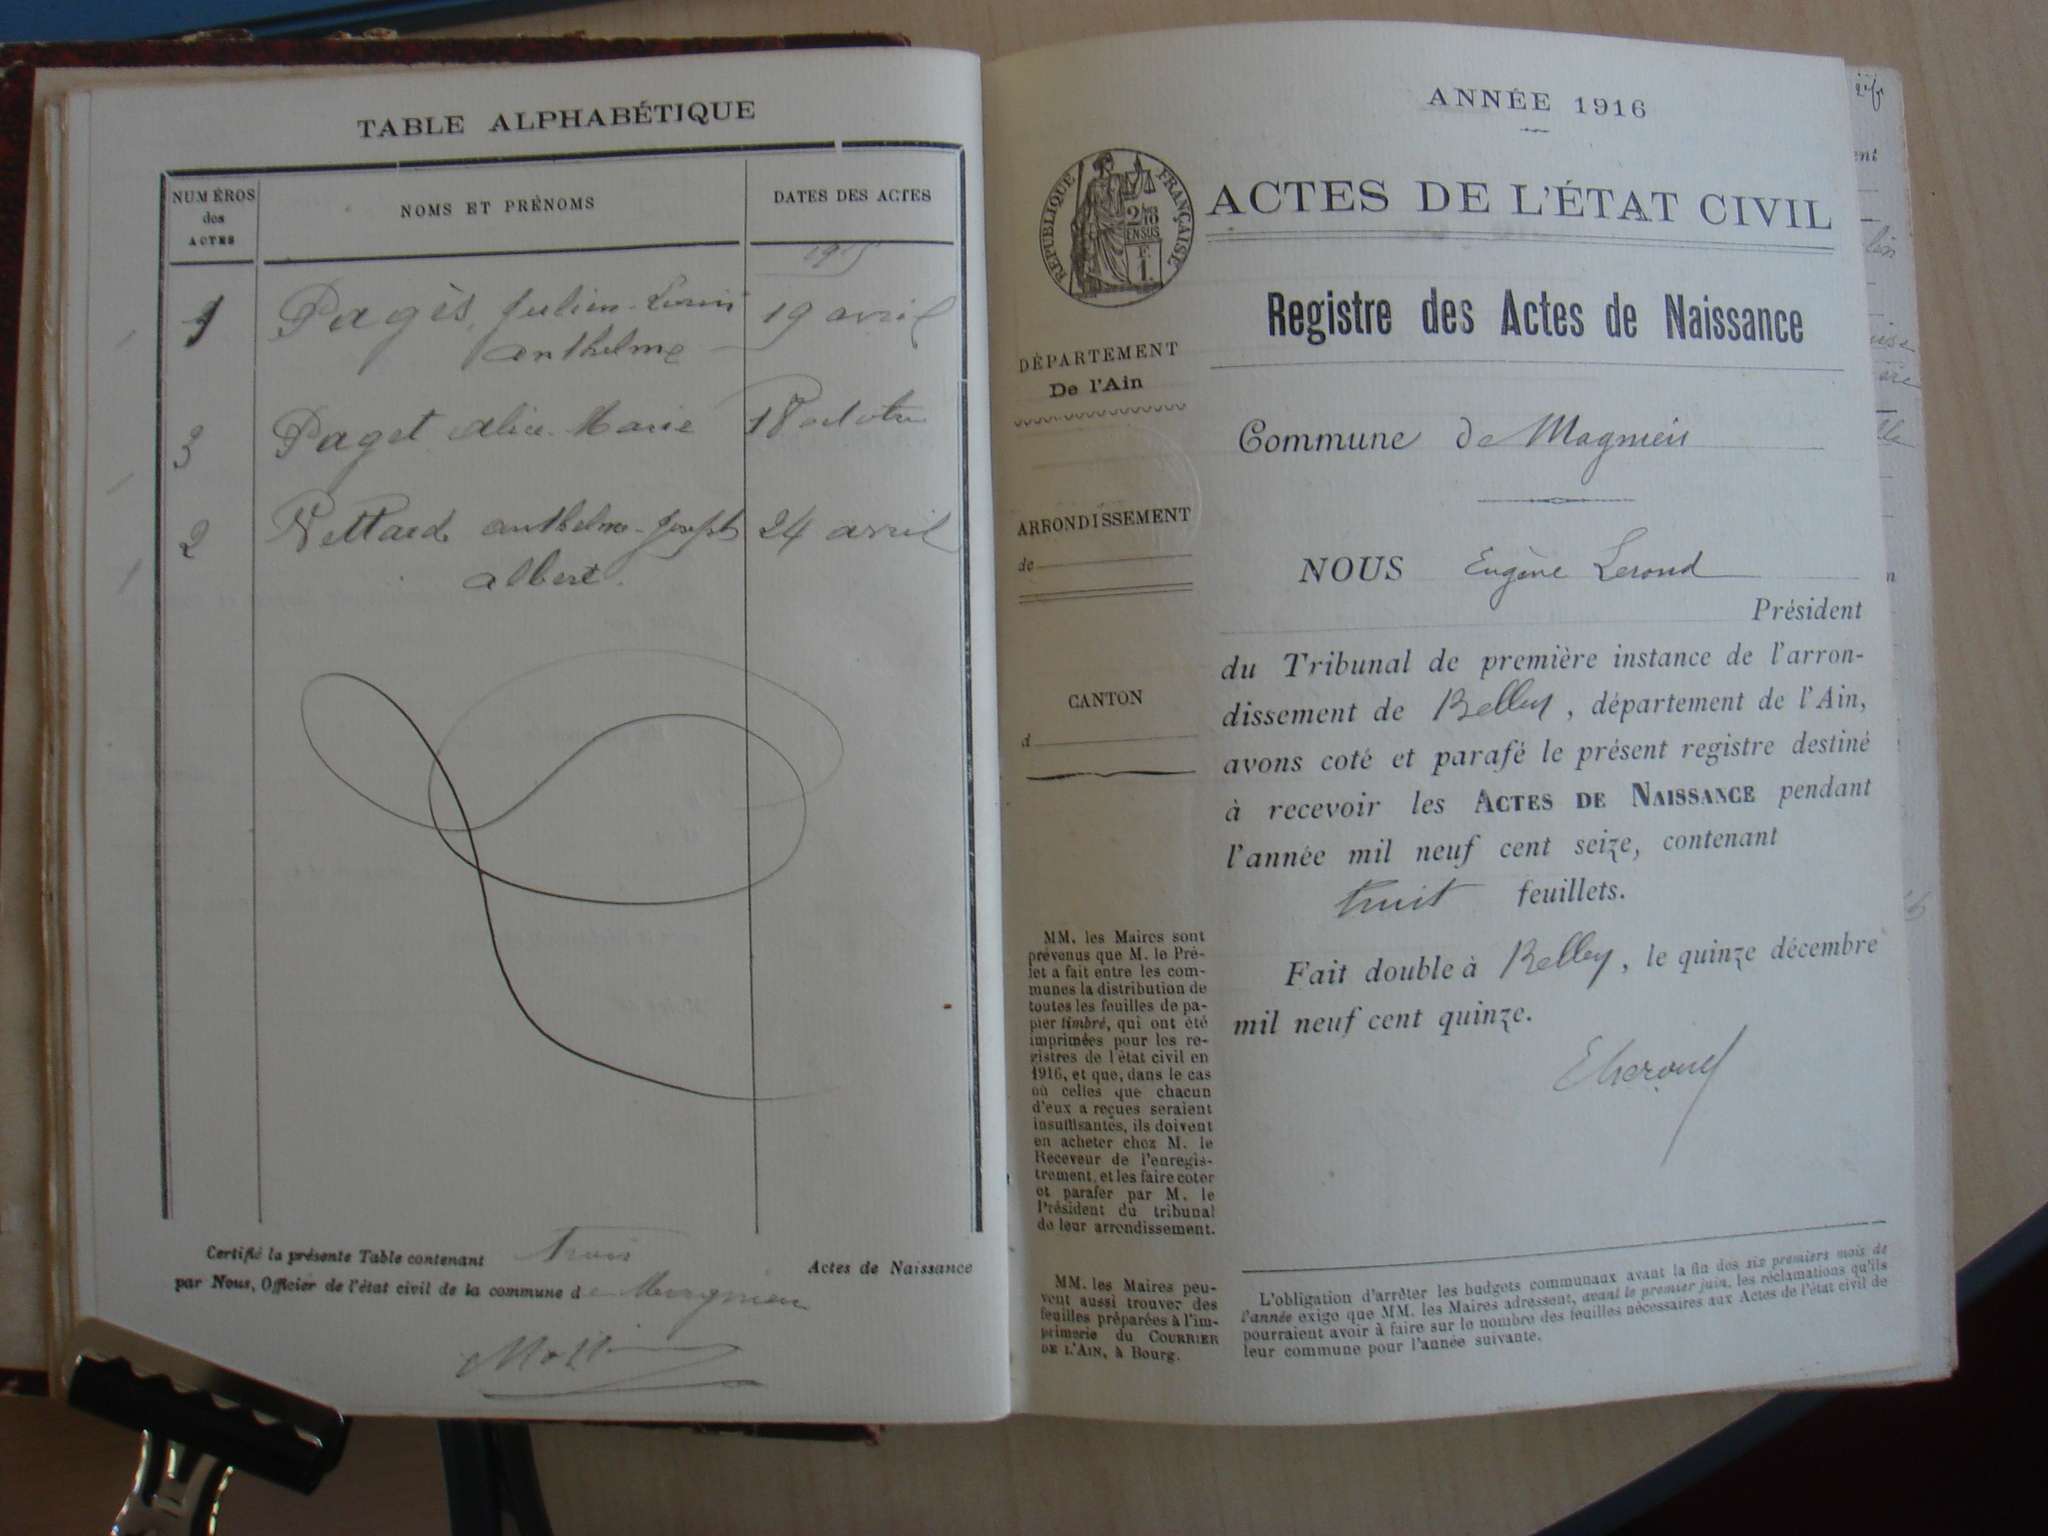 TABLE ALPHABÉTIQUE
NUMÉROS
des
ACTES
NOMS ET PRÉNOMS
DATES DES ACTES
1915
1 Pagès, Julien-Louis 19 avril
anthelme
3 Paget Alice-Marie 18 octobre
2 Vettard anthelme-Joseph 24 avril
albert.
Certifié la présente Table contenant Trois Actes de Naissance
par Nous, Officier de l'état civil de la commune de
ANNÉE 1916
RÉPUBLIQUE FRANÇAISE
2/10
EN SUS
F.
1.
ACTES DE L'ÉTAT CIVIL
Registre des Actes de Naissance
DÉPARTEMENT
De l'Ain
Commune de Magnieu
ARRONDISSEMENT
de
NOUS Eugène
Président
du Tribunal de première instance de l'arron-
dissement de Belley, département de l'Ain,
avons coté et parafé le présent registre destiné
à recevoir les ACTES DE NAISSANCE pendant
l'année mil neuf cent seize, contenant
huit feuillets.
Fait double à Belley, le quinze décembre
mil neuf cent quinze.
CANTON
d
MM. les Maires sont
prévenus que M. le Pré-
fet a fait entre les com-
munes la distribution de
toutes les feuilles de pa-
pier timbré, qui ont été
imprimées pour les re-
gistres de l'état civil en
1916, et que, dans le cas
où celles que chacun
d'eux a reçues seraient
insuffisantes, ils doivent
en acheter chez M. le
Receveur de l'enregis-
trement, et les faire coter
et parafer par M. le
Président du tribunal
de leur arrondissement.
MM. les Maires peu-
vent aussi trouver des
feuilles préparées à l'im-
primerie du COURRIER
DE L'AIN, à Bourg.
L'obligation d'arrêter les budgets communaux avant la fin des six premiers mois de
l'année exige que MM. les Maires adressent, avant le premier juin, les réclamations qu'ils
pourraient avoir à faire sur le nombre des feuilles nécessaires aux Actes de l'état civil de
leur commune pour l'année suivante.